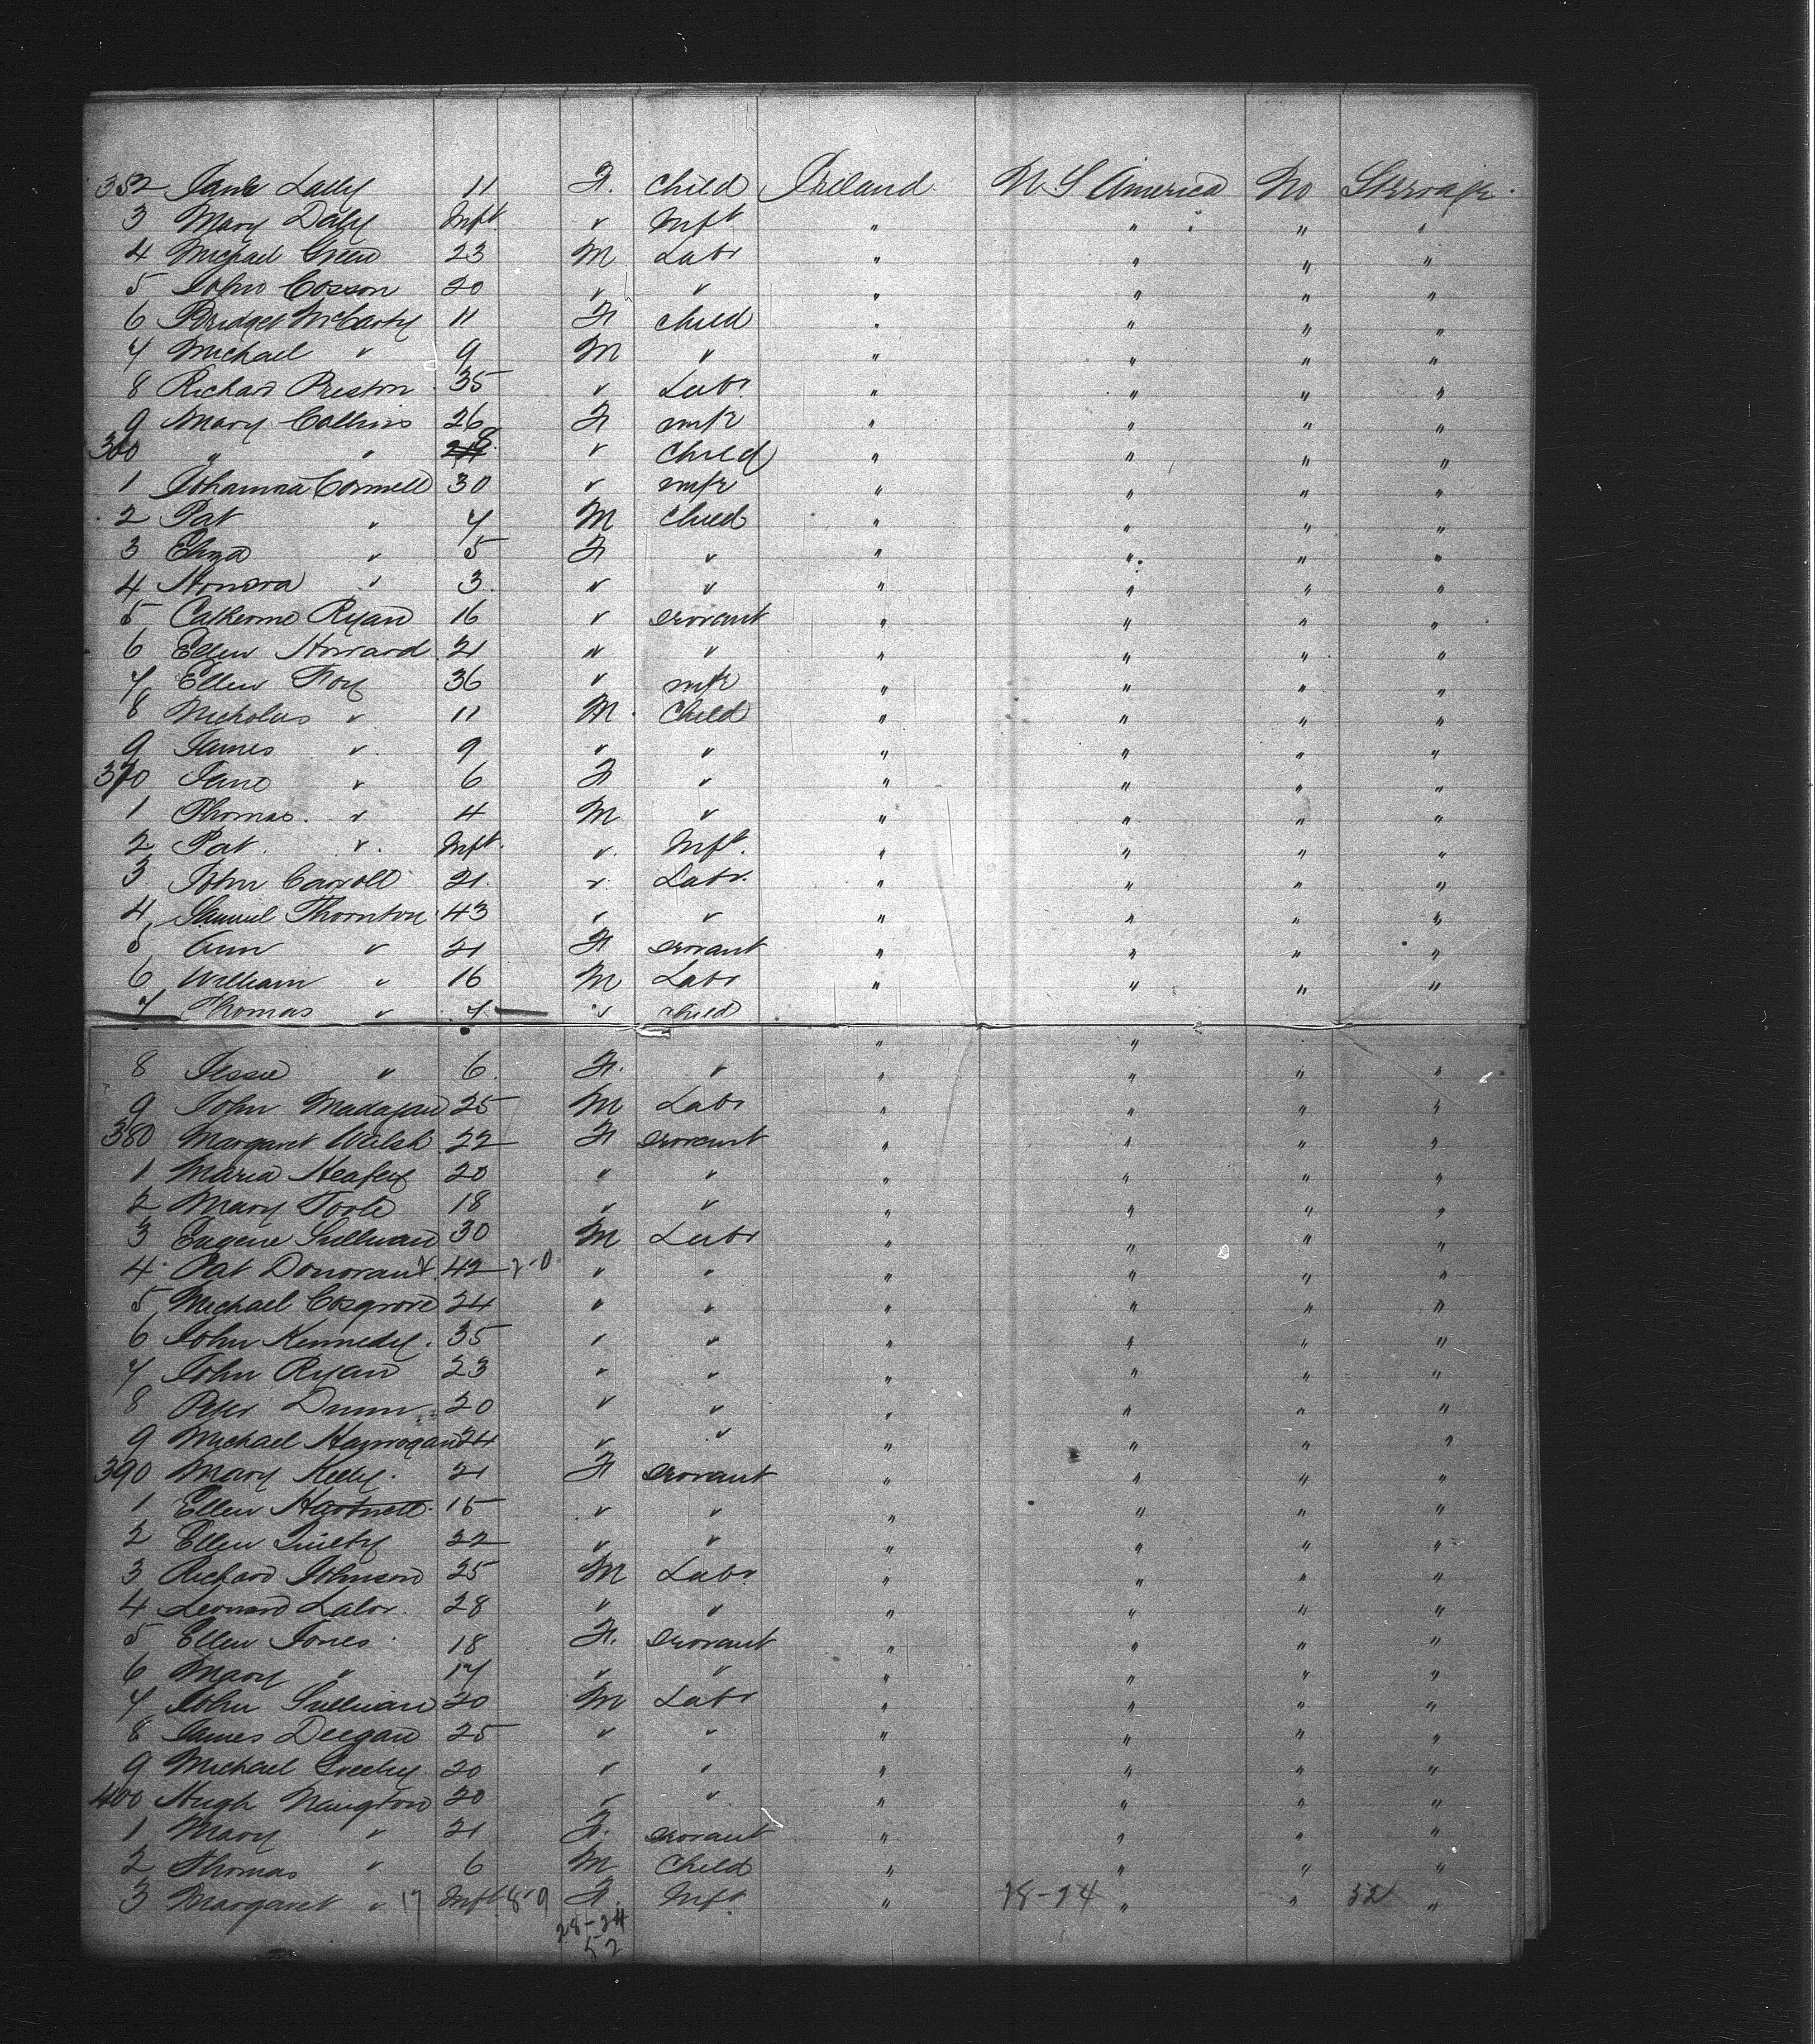 352 Jane Lally 11 F. Child Ireland U S America No Steerage.
3 Mary Daly Inft. " Inft " " " "
4 Michael Green 23 M Labr " " " "
5 John Cosson 20 " " " " " "
6 Bridget McCarty 11 F Child " " " "
7 Michael " 9 M " " " " "
8 Richard Preston 35 " Labr " " " "
9 Mary Collins 26 F wife " " " "
360 " " 8 " Child " " " "
1 Johanna Connell 30 " wife " " " "
2 Pat " 7 M Child " " " "
3 Eliza " 5 F " " " " "
4 Honora " 3 " " " " " "
5 Catherine Ryan 16 " servant " " " "
6 Ellen Howard 21 " " " " " "
7 Ellen Foy 36 " wife " " " "
8 Nicholas " 11 M Child " " " "
9 James " 9 " " " " " "
370 Jane " 6 F " " " " "
1 Thomas " 4 M " " " " "
2 Pat " Inft. " Inft. " " " "
3 John Carroll 21 " Labr. " " " "
4 Samuel Thornton 43 " " " " " "
5 Ann " 21 F servant " " " "
6 William " 16 M Labr " " " "
7 Thomas " 7 " child " "
8 Jessie " 6 F. " " " " "
9 John Madagan 25 M Labr " " " "
380 Margaret Walsh 22 F servant " " " "
1 Maria Heafey 20 " " " " " "
2 Mary Toole 18 " " " " " "
3 Eugene Sullivan 30 M Labr " " " "
4 Pat Donovan 42 2-0 " " " " " "
5 Michael Cosgrove 24 " " " " " "
6 John Kennedy 35 " " " " " "
7 John Ryan 23 " " " " " "
8 Peter Dunn 20 " " " " " "
9 Michael Hanrogan 24 " " " " " "
390 Mary Kelly 21 F servant " " " "
1 Ellen Hartnett 15 " " " " " "
2 Ellen Quilty 22 " " " " " "
3 Richard Johnson 25 M Labr " " " "
4 Leonard Lalor 28 " " " " " "
5 Ellen Jones 18 F. servant " " " "
6 Mary " 17 " " " " " "
7 John Sullivan 20 M Labr " " " "
8 James Deegan 25 " " " " " "
9 Michael 20 " " " " " "
400 Hugh Naugton 20 " " " " " "
1 Mary " 21 F. servant " " " "
2 Thomas " 6 M Child " " " "
3 Margaret " 17 Inft 8-9 F. Inft. " 28-24 " " 52 "
28-24
52